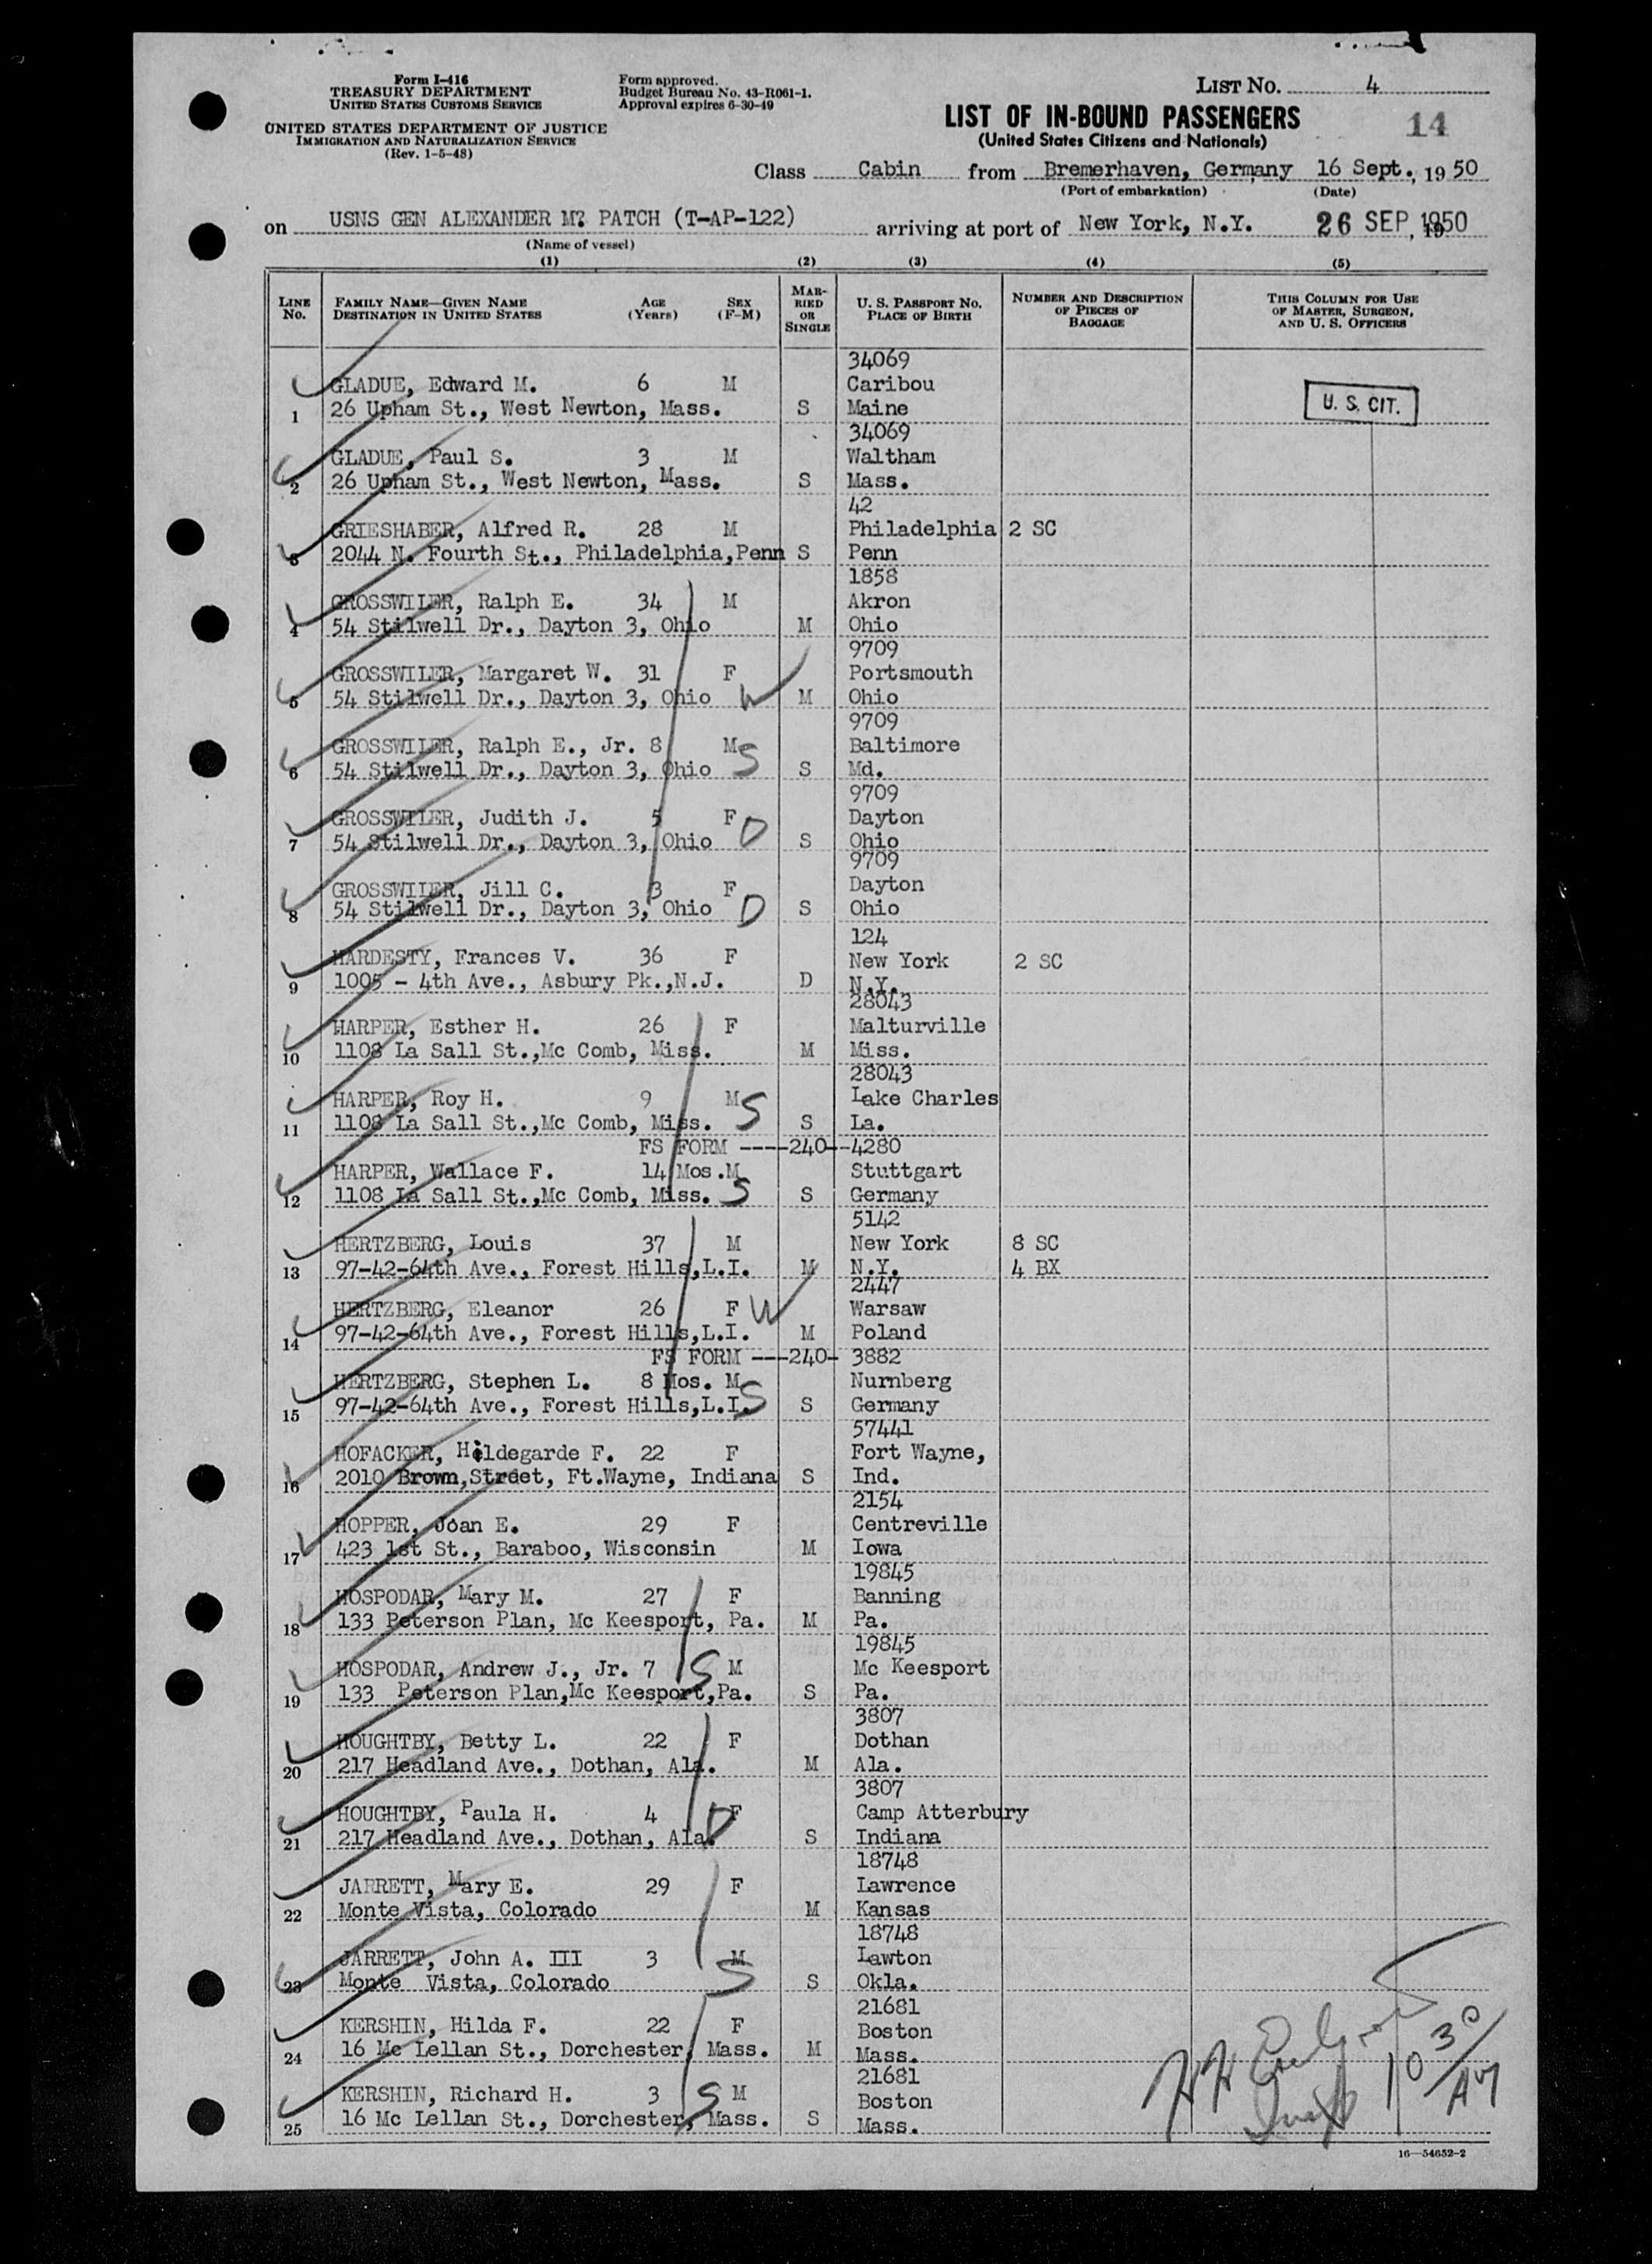 Form I-416
TREASURY DEPARTMENT
UNITED STATES CUSTOMS SERVICE
UNITED STATES DEPARTMENT OF JUSTICE
IMMIGRATION AND NATURALIZATION SERVICE
(Rev. 1-5-48)
Form approved.
Budget Bureau No. 43-R061-1.
Approval expires 6-30-49
LIST No. 4
LIST OF IN-BOUND PASSENGERS
(United States Citizens and Nationals)
14
Class Cabin from Bremerhaven, Germany 16 Sept., 19 50
(Port of embarkation) (Date)
on USNS GEN ALEXANDER M. PATCH (T-AP-122) arriving at port of New York, N.Y. 26 SEP 1950, 19
(Name of vessel)
(1) (2) (3) (4) (5)
LINE No.
FAMILY NAME—GIVEN NAME AGE (Years) SEX (F-M)
DESTINATION IN UNITED STATES
MARRIED OR SINGLE
U. S. PASSPORT NO. PLACE OF BIRTH
NUMBER AND DESCRIPTION OF PIECES OF BAGGAGE
THIS COLUMN FOR USE OF MASTER, SURGEON, AND U. S. OFFICERS
34069
GLADUE, Edward M. 6 M Caribou
1 26 Upham St., West Newton, Mass. S Maine
U. S. CIT.
34069
GLADUE, Paul S. 3 M Waltham
2 26 Upham St., West Newton, Mass. S Mass.
42
GRIESHABER, Alfred R. 28 M Philadelphia 2 SC
3 2044 N. Fourth St., Philadelphia,Penn S Penn
1858
GROSSWILER, Ralph E. 34 M Akron
4 54 Stilwell Dr., Dayton 3, Ohio M Ohio
9709
GROSSWILER, Margaret W. 31 F Portsmouth
5 54 Stilwell Dr., Dayton 3, Ohio W M Ohio
9709
GROSSWILER, Ralph E., Jr. 8 M S Baltimore
6 54 Stilwell Dr., Dayton 3, Ohio S Md.
9709
GROSSWILER, Judith J. 5 F D Dayton
7 54 Stilwell Dr., Dayton 3, Ohio S Ohio
9709
GROSSWILER, Jill C. 3 F Dayton
8 54 Stilwell Dr., Dayton 3, Ohio D S Ohio
124
HARDESTY, Frances V. 36 F New York 2 SC
9 1005 - 4th Ave., Asbury Pk.,N.J. D N.Y.
28043
HARPER, Esther H. 26 F Malturville
10 1108 La Sall St.,Mc Comb, Miss. M Miss.
28043
HARPER, Roy H. 9 M S Lake Charles
11 1108 La Sall St.,Mc Comb, Miss. S La.
FS FORM ----240--4280
HARPER, Wallace F. 14 Mos.M Stuttgart
12 1108 La Sall St.,Mc Comb, Miss. S S Germany
5142
HERTZBERG, Louis 37 M New York 8 SC
13 97-42-64th Ave., Forest Hills,L.I. M N.Y. 4 BX
2447
HERTZBERG, Eleanor 26 F W Warsaw
14 97-42-64th Ave., Forest Hills,L.I. M Poland
FS FORM ---240- 3882
HERTZBERG, Stephen L. 8 Mos. M S Nurnberg
15 97-42-64th Ave., Forest Hills,L.I. S Germany
57441
HOFACKER, Hildegarde F. 22 F Fort Wayne,
16 2010 Brown,Street, Ft.Wayne, Indiana S Ind.
2154
HOPPER, Joan E. 29 F Centreville
17 423 1st St., Baraboo, Wisconsin M Iowa
19845
HOSPODAR, Mary M. 27 F Banning
18 133 Peterson Plan, Mc Keesport, Pa. M Pa.
19845
HOSPODAR, Andrew J., Jr. 7 S M Mc Keesport
19 133 Peterson Plan,Mc Keesport,Pa. S Pa.
3807
HOUGHTBY, Betty L. 22 F Dothan
20 217 Headland Ave., Dothan, Ala. M Ala.
3807
HOUGHTBY, Paula H. 4 D F Camp Atterbury
21 217 Headland Ave., Dothan, Ala. S Indiana
18748
JARRETT, Mary E. 29 F Lawrence
22 Monte Vista, Colorado M Kansas
18748
JARRETT, John A. III 3 M Lawton
23 Monte Vista, Colorado S S Okla.
21681
KERSHIN, Hilda F. 22 F Boston
24 16 Mc Lellan St., Dorchester, Mass. M Mass.
21681
KERSHIN, Richard H. 3 S M Boston
25 16 Mc Lellan St., Dorchester, Mass. S Mass.
10 30 AM
16—54652-2